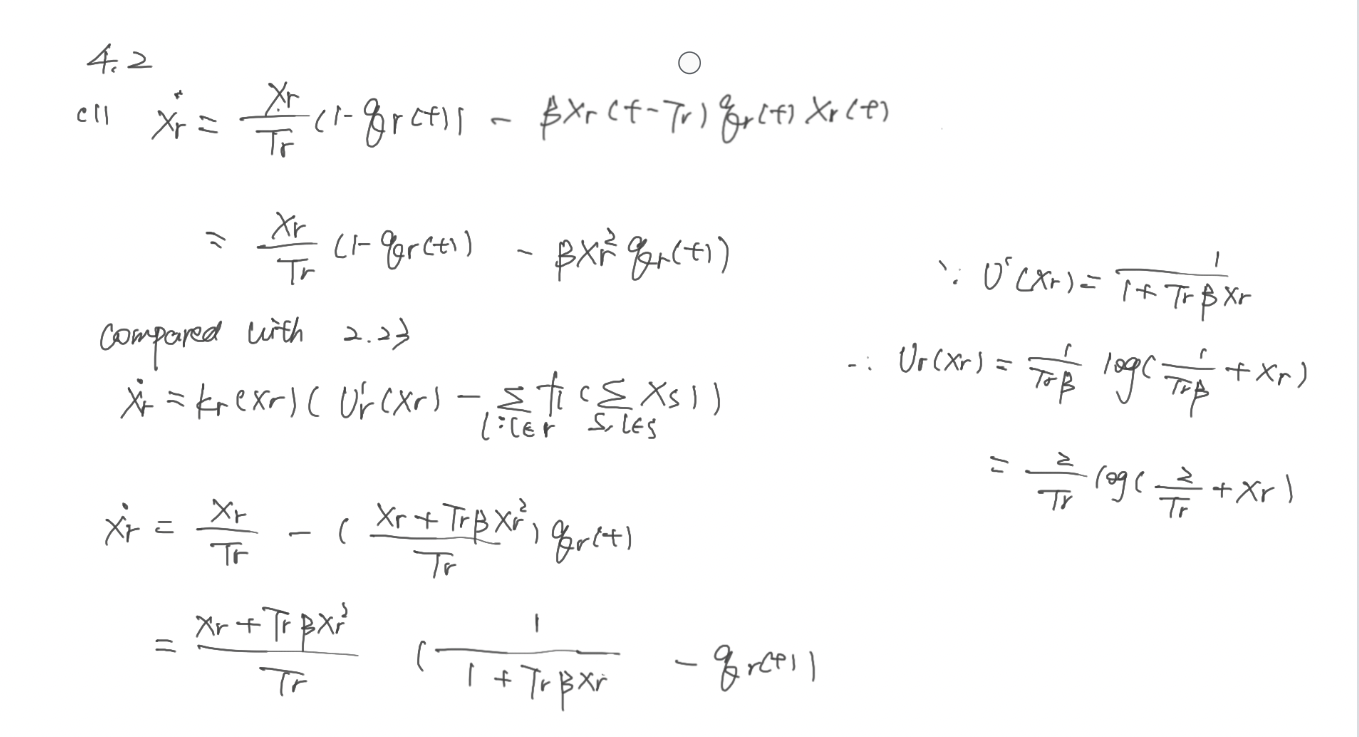 4.2
(1) ẋr = Xr/Tr (1 - qr(t)) - βXr(t-Tr) qr(t) Xr(t)
= Xr/Tr (1 - qr(t)) - βXr² qr(t))
compared with 2.23
ẋr = kr(xr)( Ur'(Xr) - Σ_{l:l∈r} fl (Σ_{s,l∈s} Xs))
ẋr = Xr/Tr - ( (Xr + TrβXr²)/Tr ) qr(t)
= (Xr + TrβXr²)/Tr ( 1/(1 + TrβXr) - qr(t))
∵ U'(Xr) = 1/(1 + TrβXr)
∴ Ur(Xr) = 1/(Trβ) log( 1/(Trβ) + Xr)
= 2/Tr log( 2/Tr + Xr)